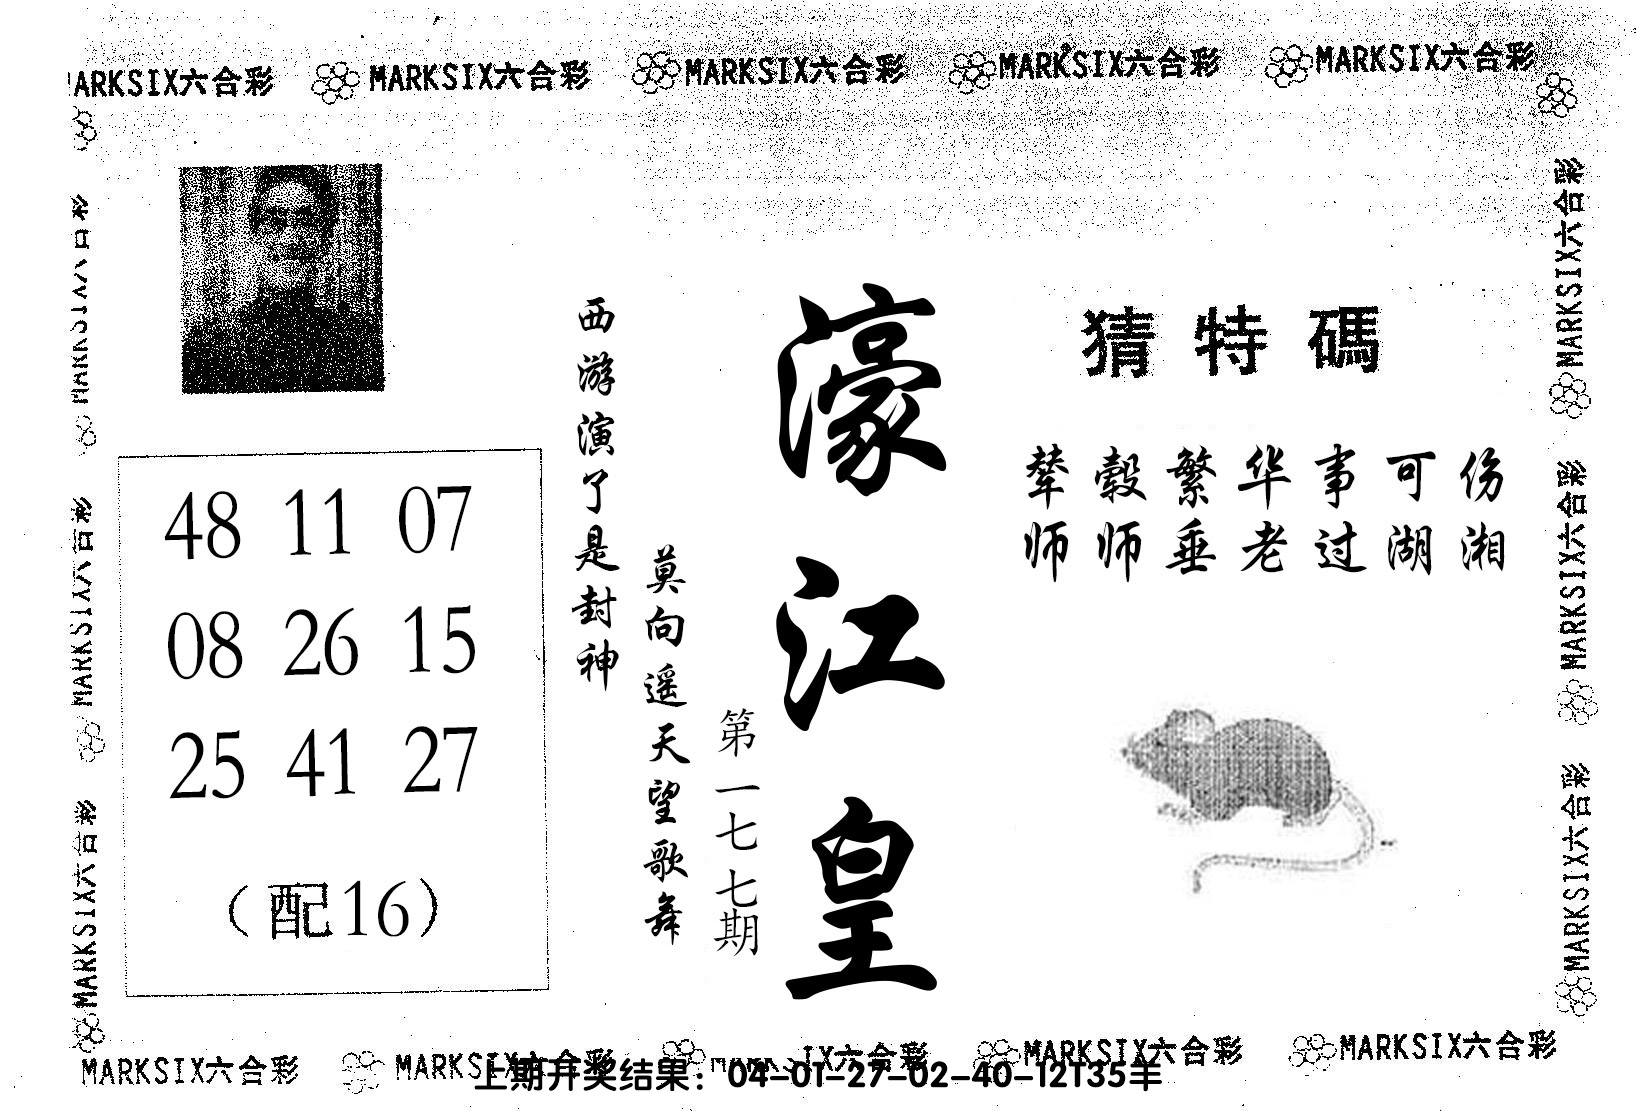 MARKSIX六合彩 MARKSIX六合彩 MARKSIX六合彩 MARKSIX六合彩 MARKSIX六合彩
MARKSIX六合彩
MARKSIX六合彩
MARKSIX六合彩
MARKSIX六合彩
MARKSIX六合彩
MARKSIX六合彩
48 11 07
08 26 15
25 41 27
（配16）
西游演了是封神
莫向遥天望歌舞
第一七七期
濠江皇
猜特碼
辇毂繁华事可伤
师师垂老过湖湘
MARKSIX六合彩 MARKSIX六合彩 MARKSIX六合彩 MARKSIX六合彩 MARKSIX六合彩
上期开奖结果：04-01-27-02-40-12T35羊